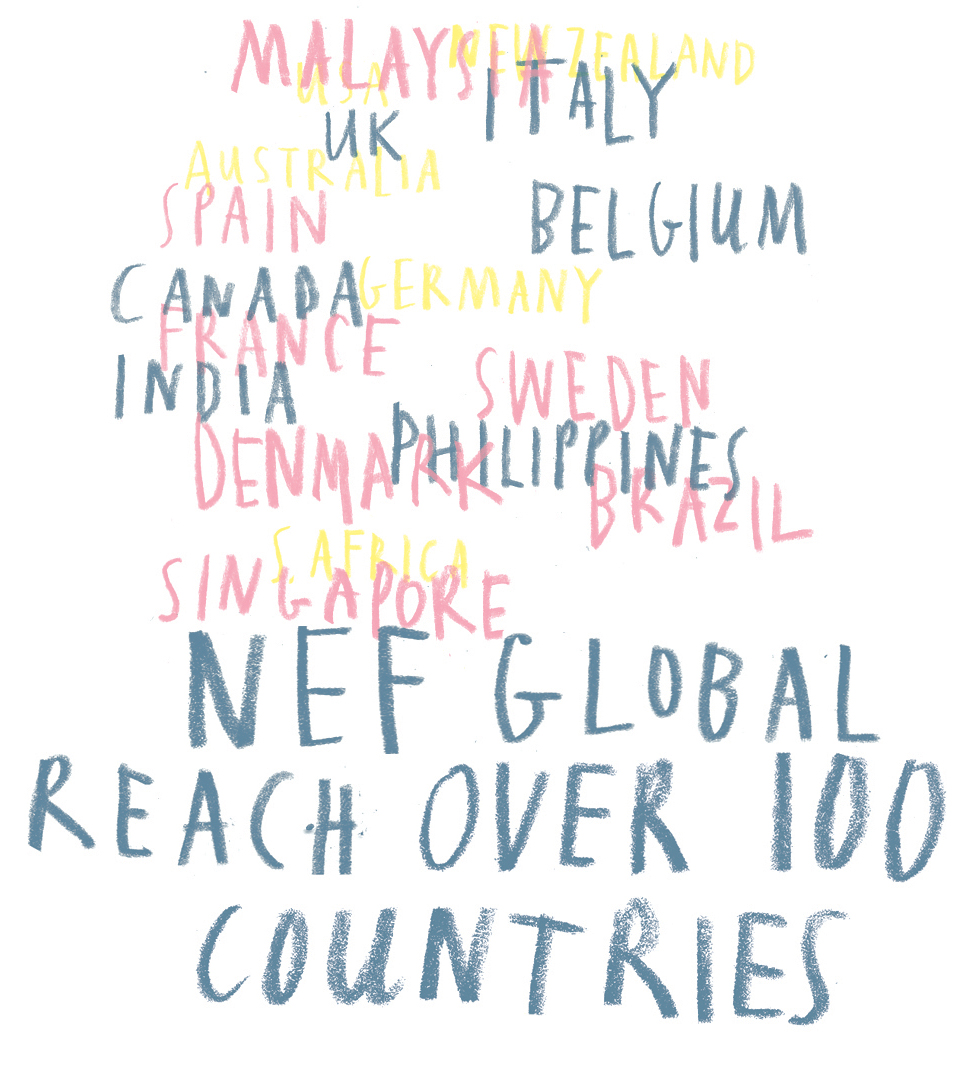 MALAYSIA
NEW ZEALAND
USA
ITALY
UK
AUSTRALIA
SPAIN
BELGIUM
CANADA
GERMANY
FRANCE
INDIA
SWEDEN
DENMARK
PHILIPPINES
BRAZIL
S. AFRICA
SINGAPORE
NEF GLOBAL
REACH OVER 100
COUNTRIES